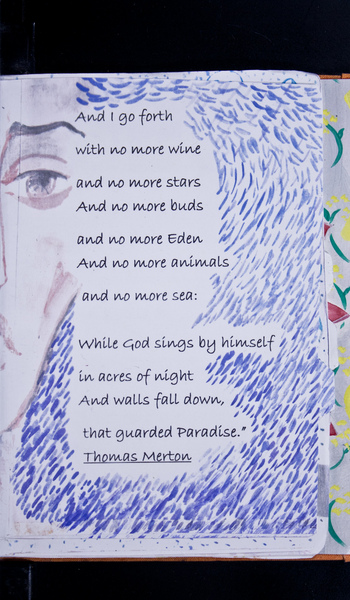 And I go forth
with no more wine
and no more stars
And no more buds
and no more Eden
And no more animals
and no more sea:
While God sings by himself
in acres of night
And walls fall down,
that guarded Paradise."
Thomas Merton